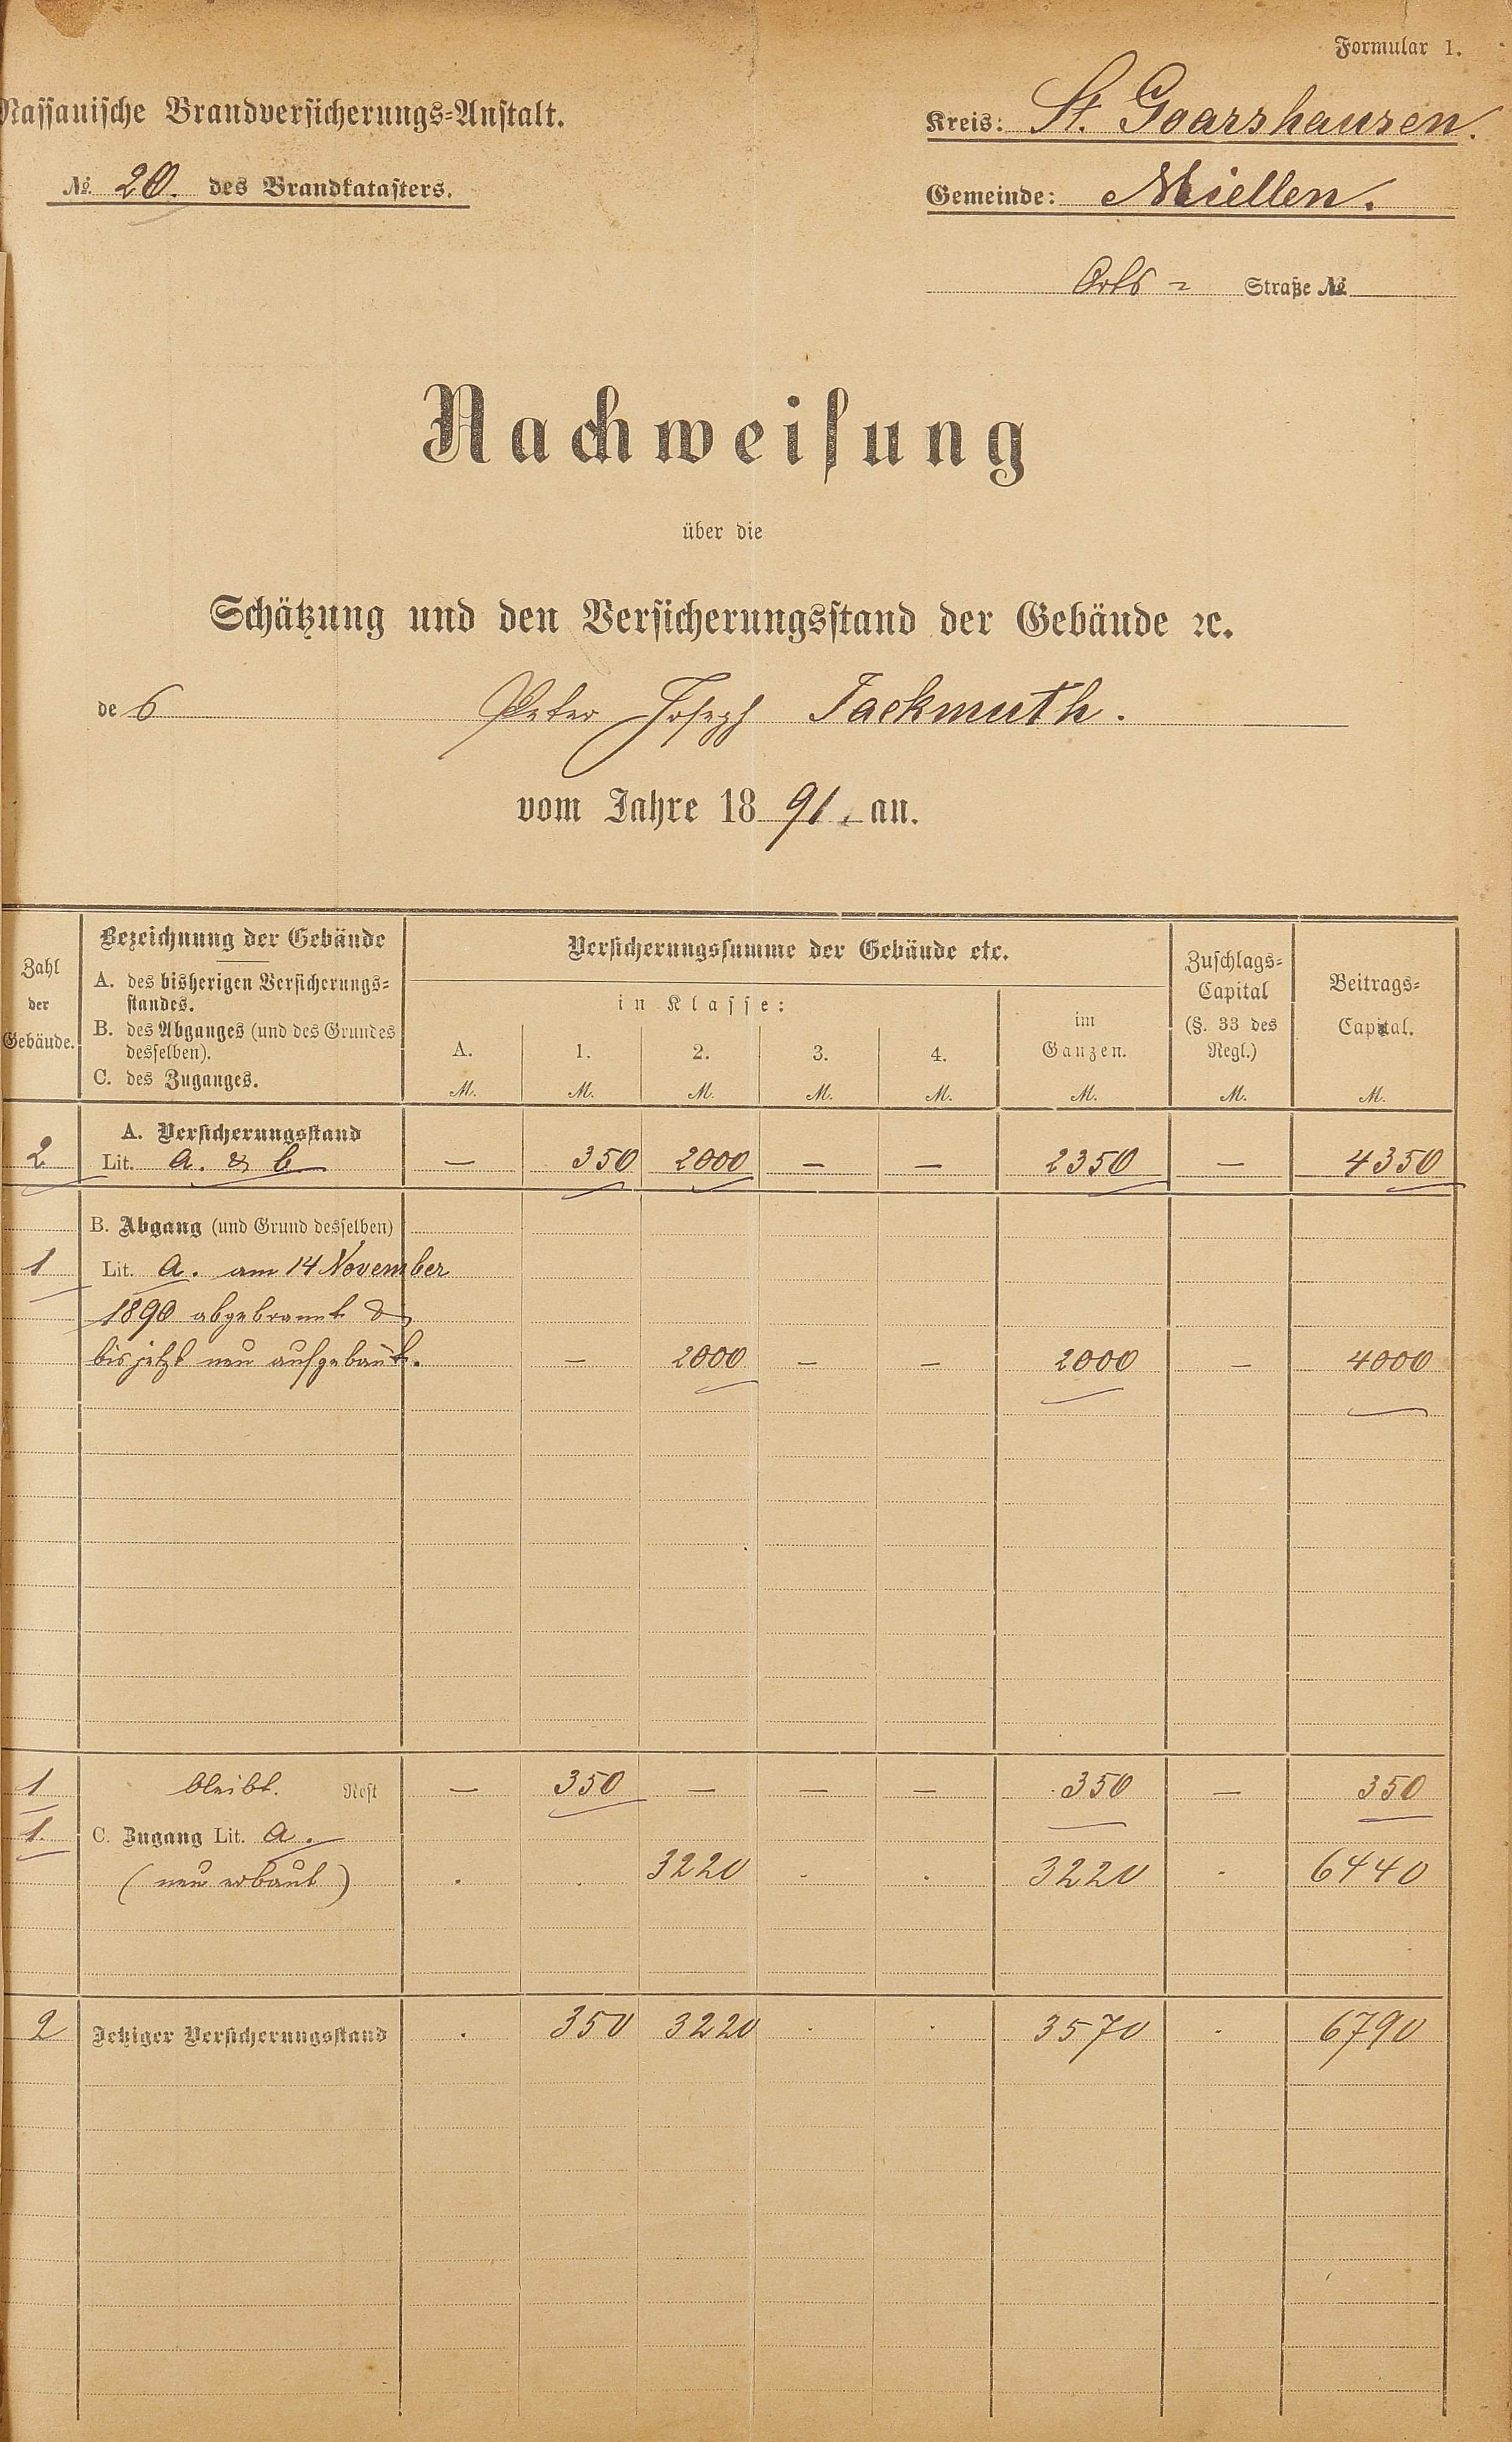 Formular 1.
Nassauische Brandversicherungs-Anstalt.
Kreis: St. Goarshausen.
№ 20. des Brandkatasters.
Gemeinde: Miellen.
Orts - Straße №
Nachweisung
über die
Schätzung und den Versicherungsstand der Gebände ꝛc.
des Peter Joseph Fackmuth.
vom Jahre 1891. an.
Zahl der Gebäude.
Bezeichnung der Gebäude
A. des bisherigen Versicherungs-
standes.
B. des Abganges (und des Grundes
desselben).
C. des Zuganges.
Versicherungssumme der Gebäude etc.
in Klasse:
A. 1. 2. 3. 4.
M. M. M. M. M.
im
Ganzen.
M.
Zuschlags-
Capital
(§. 33 des
Regl.)
M.
Beitrags-
Capital.
M.
A. Versicherungsstand
2 Lit. a. & b — 350 2000 — — 2350 — 4350
B. Abgang (und Grund desselben)
1 Lit. a. am 14 November
1890 abgebrannt &
bis jetzt neu aufgebaut. — 2000 — — 2000 — 4000
1 bleibt. Rest — 350 — — — 350 — 350
1. C. Zugang Lit. a.
(neu erbaut) . . 3220 . . 3220 . 6440
2 Jetziger Versicherungsstand . 350 3220 . . 3570 . 6790